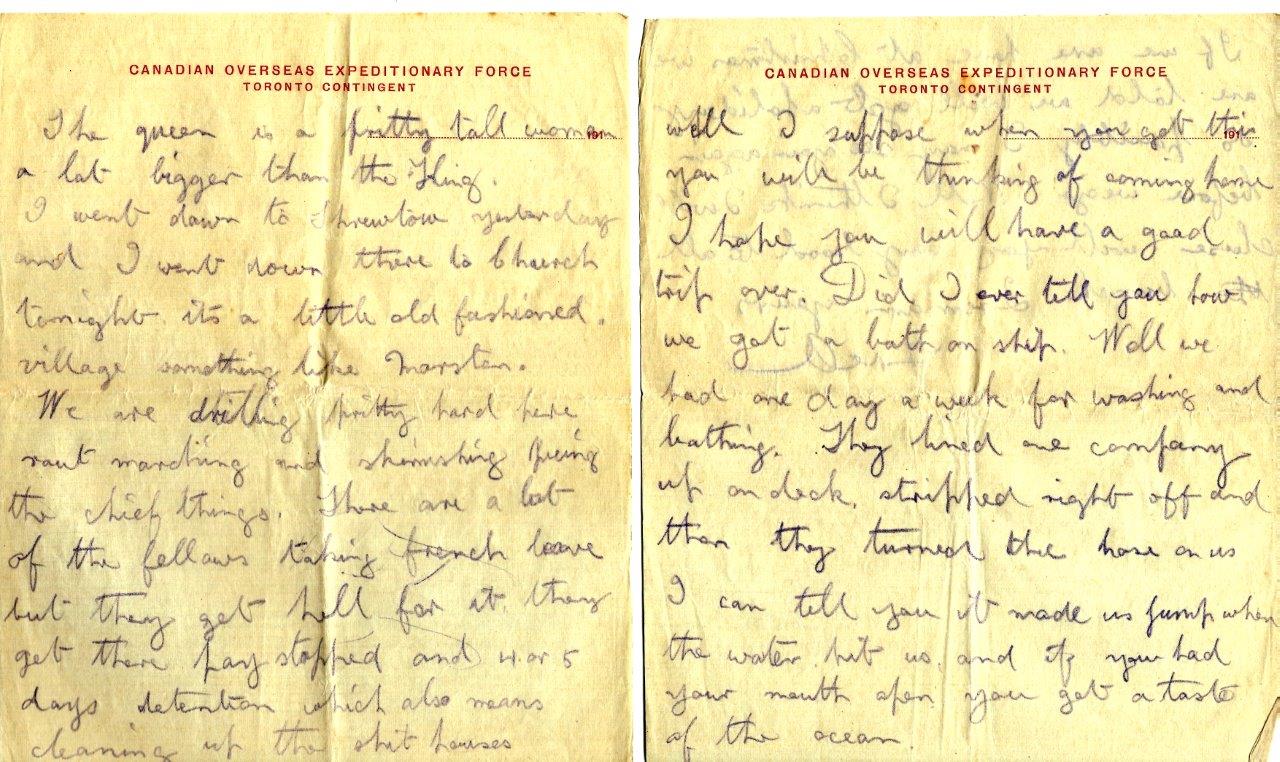 CANADIAN OVERSEAS EXPEDITIONARY FORCE
TORONTO CONTINGENT
191
The queen is a pritty tall woman
a lot bigger than the King.
I went down to Shrewtow yesterday
and I went down there to Church
tonight its a little old fashioned.
village something like Marston.
We are drilling pritty hard here
rout marching and skirmishing being
the chief things. There are a lot
of the fellows taking french leave
but they get hell for it. they
get there pay stopped and 4 or 5
days detention which also means
cleaning up the shit houses
CANADIAN OVERSEAS EXPEDITIONARY FORCE
TORONTO CONTINGENT
191
well I suppose when you get this
you will be thinking of coming home
I hope you will have a good
trip over. Did I ever tell you how
we got a bath on ship. Well we
had one day a week for washing and
bathing. They lined one company
up on deck, stripped right off and
then they turned the hose on us
I can tell you it made us jump when
the water hit us. and if you had
your mouth open you got a taste
of the ocean.